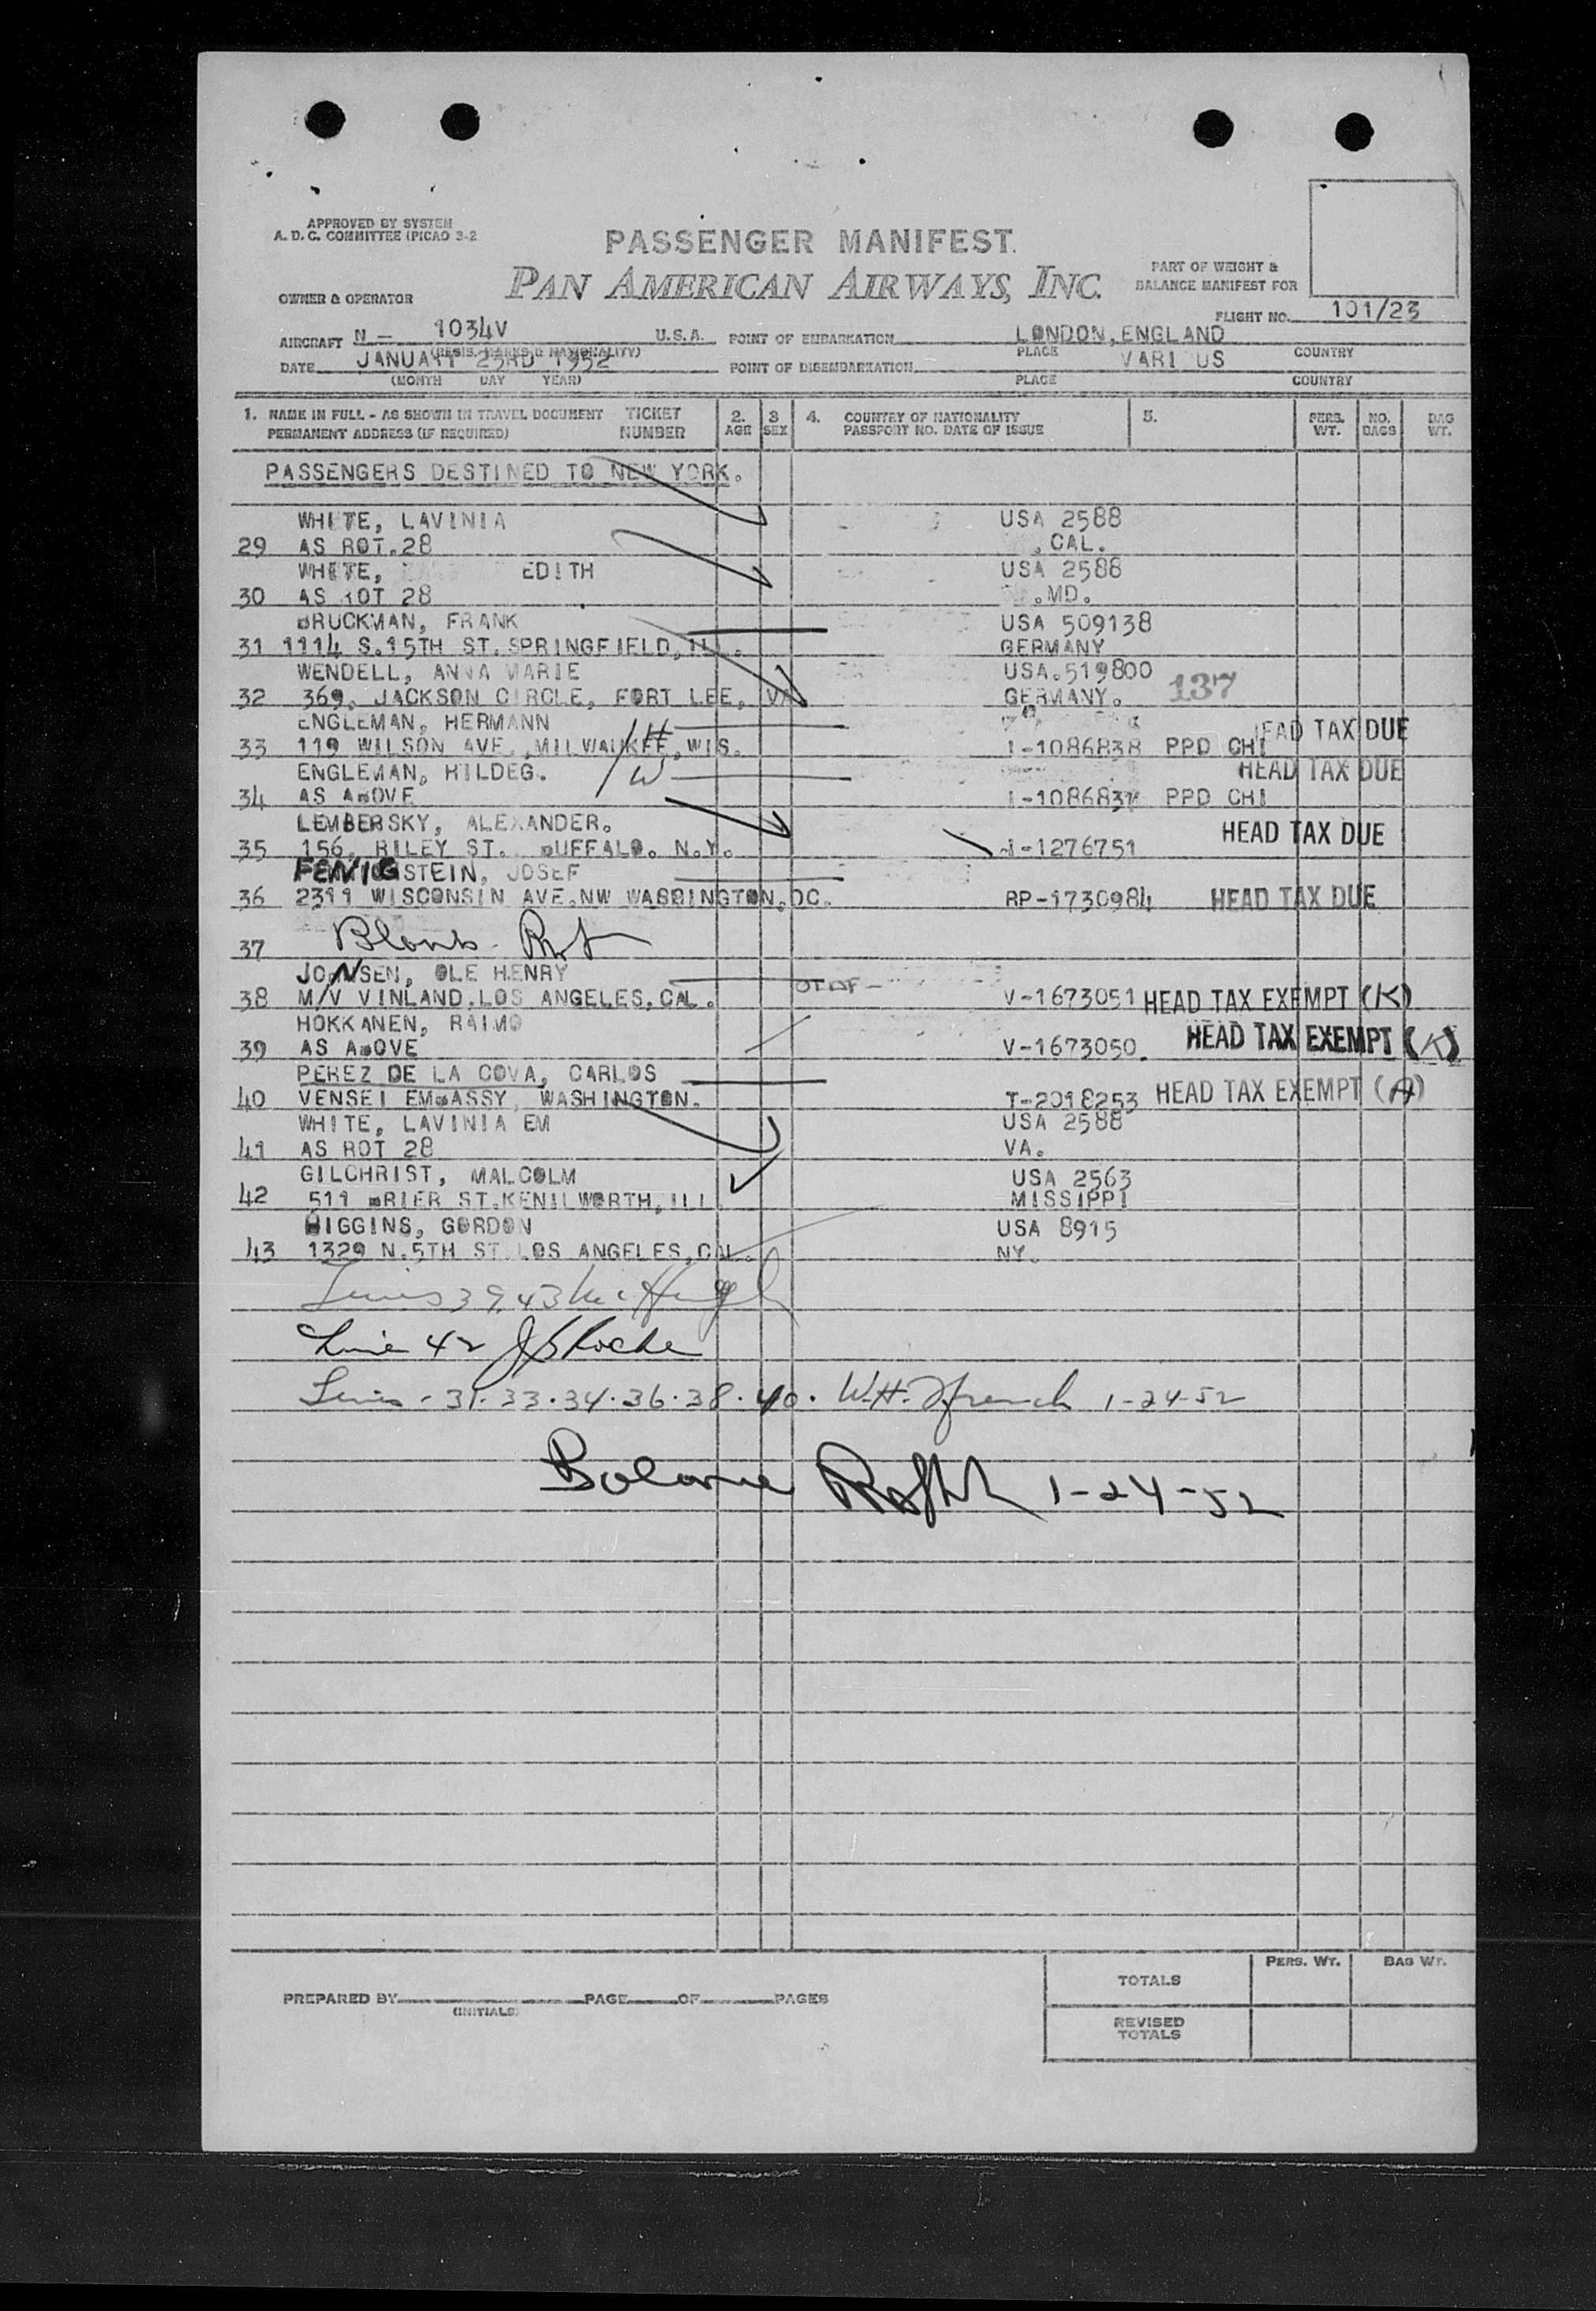 APPROVED BY SYSTEM
A. D. C. COMMITTEE (PICAO 3-2
PASSENGER MANIFEST.
PAN AMERICAN AIRWAYS, INC.
PART OF WEIGHT &
BALANCE MANIFEST FOR
OWNER & OPERATOR
FLIGHT NO. 101/23
AIRCRAFT N - 1034V U.S.A. POINT OF EMBARKATION LONDON, ENGLAND
(REGIS. MARKS & NATIONALITY) PLACE COUNTRY
DATE JANUARY 23RD 1952 POINT OF DISEMBARKATION VARI US
(MONTH DAY YEAR) PLACE COUNTRY
1. NAME IN FULL - AS SHOWN IN TRAVEL DOCUMENT TICKET 2. 3 4. COUNTRY OF NATIONALITY 5. PERS. NO. BAG
PERMANENT ADDRESS (IF REQUIRED) NUMBER AGE SEX PASSPORT NO. DATE OF ISSUE WT. BAGS WT.
PASSENGERS DESTINED TO NEW YORK.
WHITE, LAVINIA USA 2588
29 AS ROT.28 . CAL.
WHITE, EDITH USA 2588
30 AS ROT 28 .MD.
BRUCKMAN, FRANK USA 509138
31 1114 S.15TH ST.SPRINGFIELD, ILL. GERMANY
WENDELL, ANNA MARIE USA.519800
32 369, JACKSON CIRCLE, FORT LEE, VA GERMANY. 137
ENGLEMAN, HERMANN /H HEAD TAX DUE
33 119 WILSON AVE.,MILWAUKEE,WIS. I-1086838 PPD CHI
ENGLEMAN, HILDEG. /W HEAD TAX DUE
34 AS ABOVE I-1086837 PPD CHI
LEMBERSKY, ALEXANDER. HEAD TAX DUE
35 156, RILEY ST. BUFFALO. N.Y. I-1276751
FENIGSTEIN, JOSEF
36 2311 WISCONSIN AVE.NW WASHINGTON.DC. RP-1730984 HEAD TAX DUE
37 Blank
JONSEN, OLE HENRY
38 M/V VINLAND.LOS ANGELES, CAL. V-1673051 HEAD TAX EXEMPT (K)
HOKKANEN, RAIMO
39 AS ABOVE V-1673050. HEAD TAX EXEMPT (K)
PEREZ DE LA COVA, CARLOS
40 VENSEI EMBASSY, WASHINGTON. T-2018253 HEAD TAX EXEMPT (A)
WHITE, LAVINIA EM USA 2588
41 AS ROT 28 VA.
GILCHRIST, MALCOLM USA 2563
42 511 BRIER ST.KENILWORTH, ILL MISSIPPI
HIGGINS, GORDON USA 8915
43 1329 N.5TH ST.LOS ANGELES, CAL. NY.
Lines 39, 43 McHugh
Line 42 Roche
Lines - 31. 33. 34. 36. 38. 40. W.H. French 1-24-52
Balance 1-24-52
PREPARED BY PAGE OF PAGES
(INITIALS)
PERS. WT. BAG WT.
TOTALS
REVISED
TOTALS